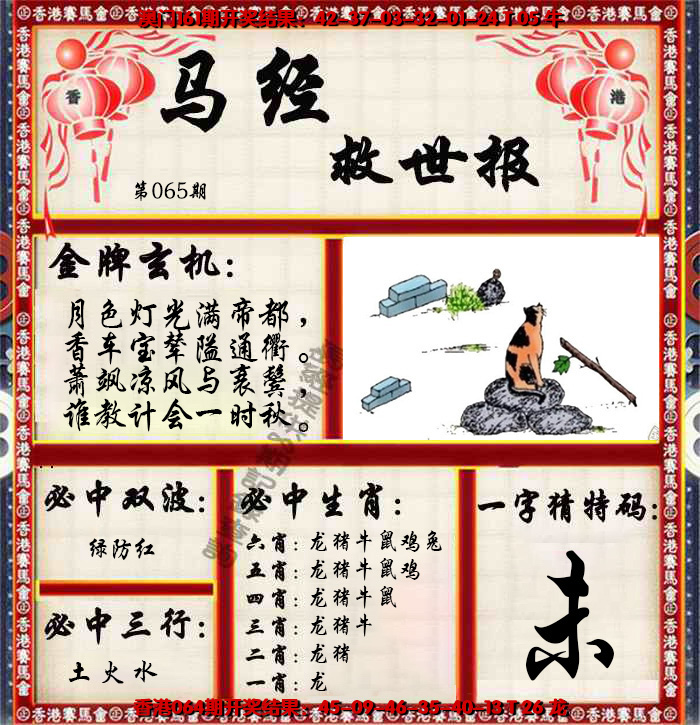 澳门161期开奖结果：42-37-03-32-01-24 T 05 牛
香 港
马经
救世报
第065期
金牌玄机：
月色灯光满帝都，
香车宝辇隘通衢。
萧飒凉风与衰鬓，
谁教计会一时秋。
必中双波：
绿防红
必中三行：
土火水
必中生肖：
六肖：龙猪牛鼠鸡兔
五肖：龙猪牛鼠鸡
四肖：龙猪牛鼠
三肖：龙猪牛
二肖：龙猪
一肖：龙
一字猜特码：
未
香港064期开奖结果：45-09-46-35-40-13 T 26 龙
香港賽馬會